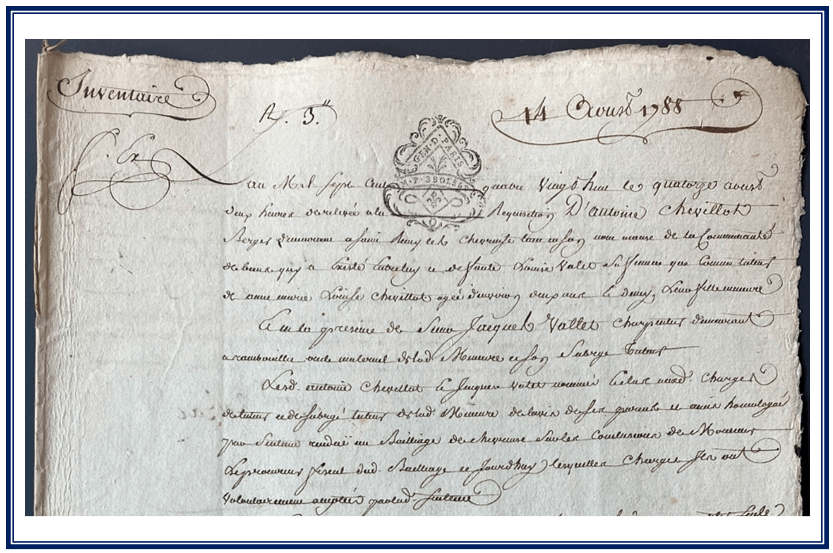 Inventaire
N. 3.
14 Aoust 1788
Ex
GEN. D. PARIS
L'an Mil Sept Cent quatre Vingt huit le quatorze aoust
deux heures de relevée a la Requisition D'antoine Chevillot
Berger demeurant a saint Remy les Chevreuse tant en son nom a cause de la Communauté
de biens qui a Existé Entre luy et deffunte Louise Valet Sa femme que Comme tuteur
de anne marie Louise Chevillot agée d'environ deux ans et demy, Leur fille mineure
Et en la presence de Sieur Jacques Vallet Charpentier demeurant
a rambouillet oncle maternel de lad. Mineure et son Subrogé Tuteur
Lesd. antoine Chevillot et Jacques Valet nommés Charges
de tuteur et de subrogé tuteur de lad. Mineure de lavis de ses parents et amis homologué
par Sentence rendue au Bailliage de chevreuse sur les Conclusions de Monsieur
Le procureur fiscal dud. Bailliage lesquelles Charges Ils ont
volontairement acceptées par lad. Sentence